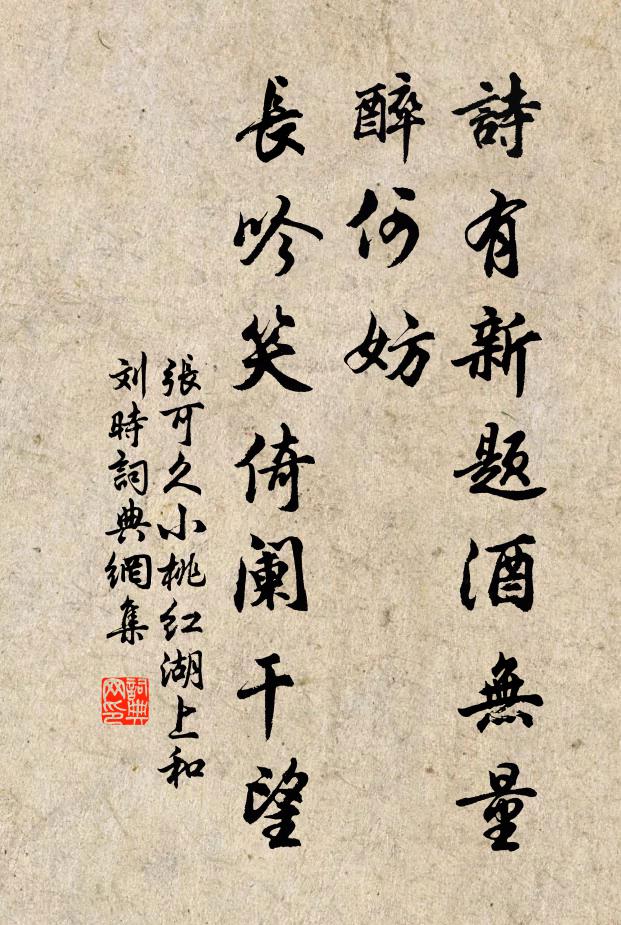 詩有新題酒無量
醉何妨
長吟笑倚闌干望
張可久小桃紅湖上和
刘時詞典網集
詞典
网印